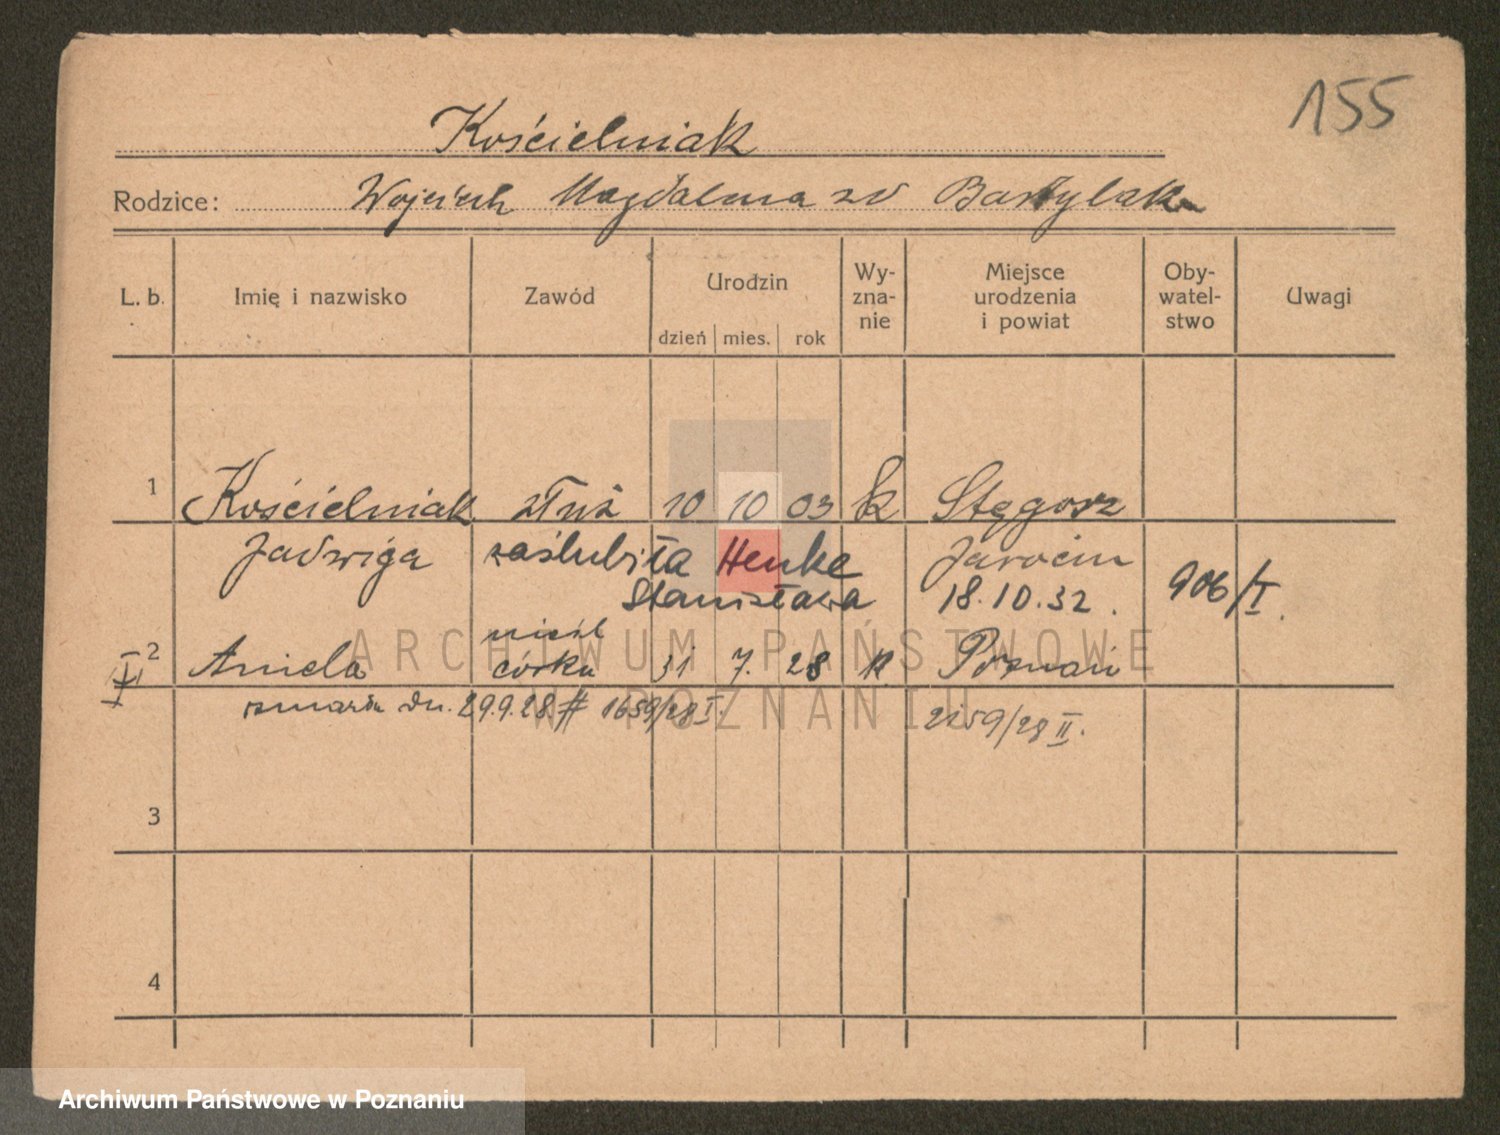 155
Kościelniak
Rodzice: Wojciech Magdalena zd Bartylak
L. b. Imię i nazwisko Zawód Urodzin Wy-zna-nie Miejsce urodzenia i powiat Oby-watel-stwo Uwagi
dzień mies. rok
1 Kościelniak służ 10 10 03 k Stęgosz
Jadwiga zaślubiła Henke Jarocin
Stanisława 18.10.32. 906/I.
nieśl
2 Aniela córka 31 7. 28 k Poznań
zmarła dn. 29.9.28 # 1659/28 I. 2159/28 II.
3
4
ARCHIWUM PAŃSTWOWE
W POZNANIU
Archiwum Państwowe w Poznaniu